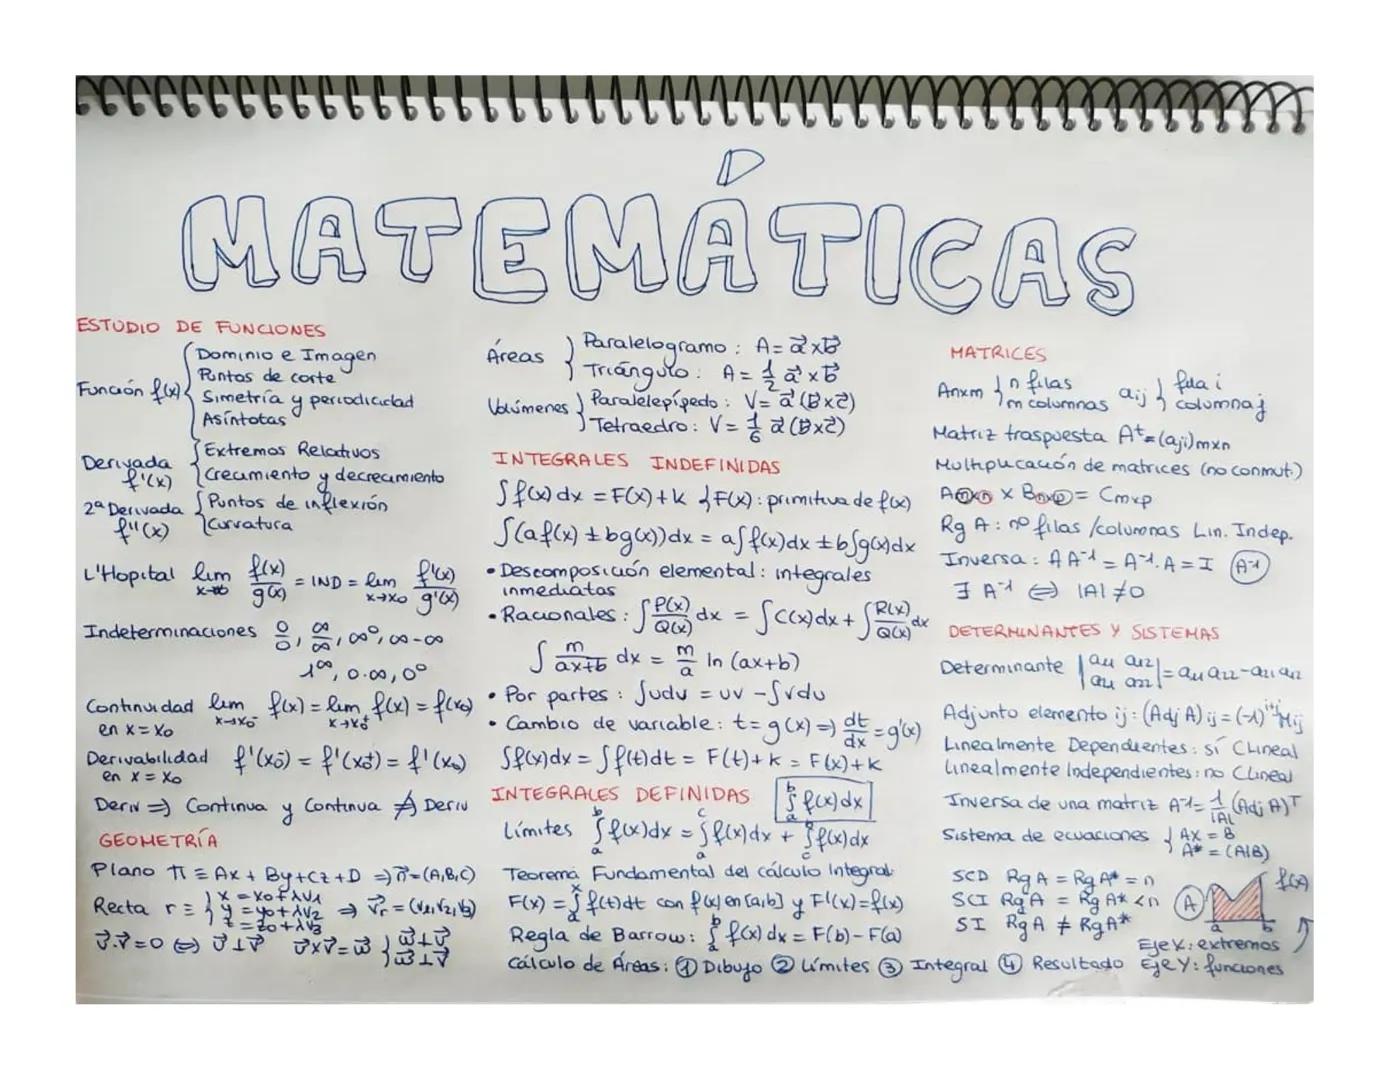 MATEMÁTICAS
ESTUDIO DE FUNCIONES
Función f(x) { Dominio e Imagen
Puntos de corte
Simetría y periodicidad
Asíntotas
Derivada f'(x) { Extremos Relativos
Crecimiento y decrecimiento
2ª Derivada f''(x) { Puntos de inflexión
Curvatura
L'Hopital lim x→x0 f(x)/g(x) = IND = lim x→x0 f'(x)/g'(x)
Indeterminaciones 0/0, ∞/∞, ∞⁰, ∞-∞
1^∞, 0·∞, 0⁰
Continuidad lim x→x0⁻ f(x) = lim x→x0⁺ f(x) = f(x0)
en x = x0
Derivabilidad f'(x0⁻) = f'(x0⁺) = f'(x0)
en x = x0
Deriv ⇒ Continua y Continua ⇏ Deriv
GEOMETRÍA
Plano π ≡ Ax + By + Cz + D ⇒ n⃗ = (A,B,C)
Recta r ≡ { x = x0 + λv1
y = y0 + λv2 ⇒ v⃗r = (v1,v2,v3)
z = z0 + λv3
u⃗·v⃗ = 0 ⇔ u⃗ ⊥ v⃗ u⃗ x v⃗ = w⃗ { w⃗ ⊥ u⃗
w⃗ ⊥ v⃗
Áreas { Paralelogramo: A = a⃗ x b⃗
Triángulo: A = 1/2 a⃗ x b⃗
Volúmenes { Paralelepípedo: V = a⃗ (b⃗ x c⃗)
Tetraedro: V = 1/6 a⃗ (b⃗ x c⃗)
INTEGRALES INDEFINIDAS
∫f(x) dx = F(x) + K { F(x): primitiva de f(x)
∫(af(x) ± bg(x))dx = a∫f(x)dx ± b∫g(x)dx
• Descomposición elemental: integrales
inmediatas
• Racionales: ∫P(x)/Q(x) dx = ∫C(x)dx + ∫R(x)/Q(x) dx
∫ m/(ax+b) dx = m/a ln (ax+b)
• Por partes: ∫udv = uv - ∫vdu
• Cambio de variable: t = g(x) ⇒ dt/dx = g'(x)
∫f(x)dx = ∫f(t)dt = F(t) + K = F(x) + K
INTEGRALES DEFINIDAS ∫ₐᵇ f(x)dx
Límites ∫ₐᵇ f(x)dx = ∫ₐᶜ f(x)dx + ∫ᶜᵇ f(x)dx
Teorema Fundamental del cálculo Integral
F(x) = ∫ₐˣ f(t)dt con f(x) en [a,b] y F'(x) = f(x)
Regla de Barrow: ∫ₐᵇ f(x)dx = F(b) - F(a)
Cálculo de Áreas: ① Dibujo ② Límites ③ Integral ④ Resultado
MATRICES
Anxm { n filas
m columnas aij { fila i
columna j
Matriz traspuesta Aᵗ = (aji)mxn
Multiplicación de matrices (no conmut.)
Amxn x Bnxp = Cmxp
Rg A: nº filas /columnas Lin. Indep.
Inversa: A A⁻¹ = A⁻¹. A = I A⁻¹
∃ A⁻¹ ⇔ |A| ≠ 0
DETERMINANTES Y SISTEMAS
Determinante |a11 a12
a21 a22| = a11 a22 - a21 a12
Adjunto elemento ij: (Adj A)ij = (-1)^i+j Mij
Linealmente Dependientes: sí CLineal
Linealmente Independientes: no CLineal
Inversa de una matriz A⁻¹ = 1/|A| (Adj A)ᵀ
Sistema de ecuaciones { AX = B
A* = (A|B)
SCD Rg A = Rg A* = n
SCI Rg A = Rg A* < n
SI Rg A ≠ Rg A*
A f(x)
a b
Eje X: extremos
Eje Y: funciones